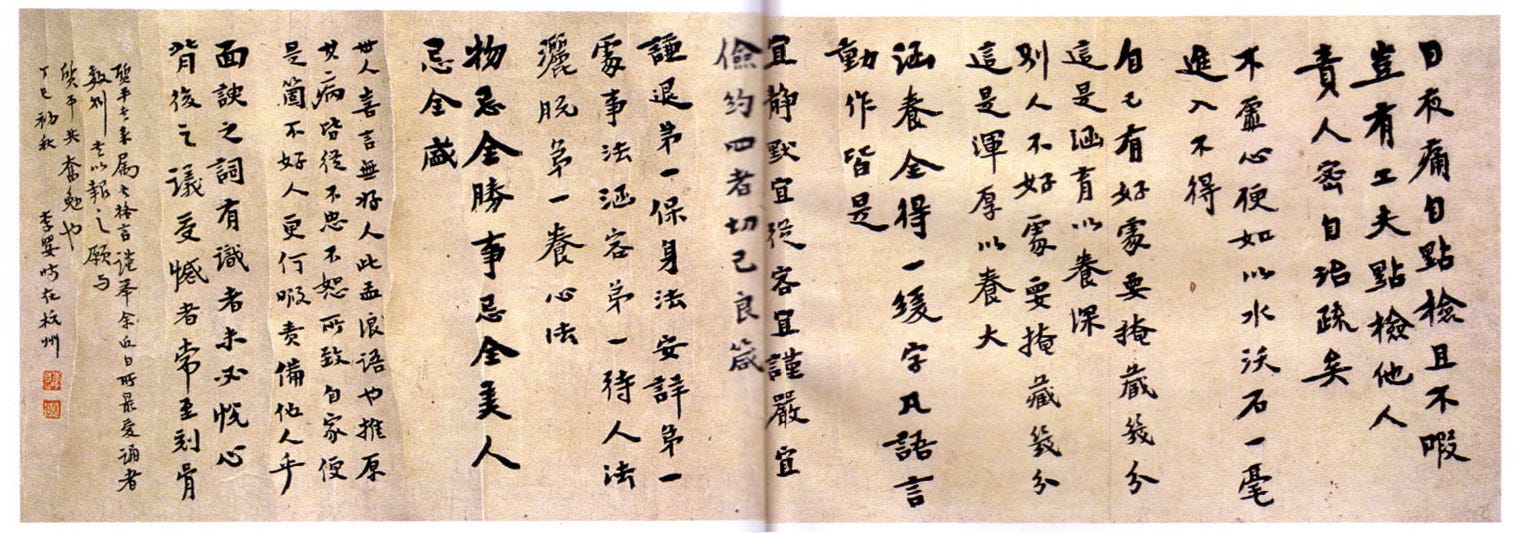 日夜痛自點檢且不暇
豈有工夫點檢他人
責人密自治疏矣
不虛心便如以水沃石一毫
進入不得
自己有好處要掩藏幾分
這是涵育以養深
別人不好處要掩藏幾分
這是渾厚以養大
涵養全得一緩字凡語言
動作皆是
宜靜默宜從容宜謹嚴宜
儉約四者切己良箴
謙退第一保身法安詳第一
處事法涵容第一待人法
灑脫第一養心法
物忌全勝事忌全美人
忌全盛
世人喜言無好人此孟浪語也推原
其病皆從不忠不恕所致自家便
是箇不好人更何暇責備他人乎
面諛之詞有識者未必悅心
背後之議受憾者常至刻骨
丏平吉來屬書格言謹奉余丘日所最愛誦者
數則書以報之願与
丏平共奮勉也
丁巳初秋 李嬰時在杭州